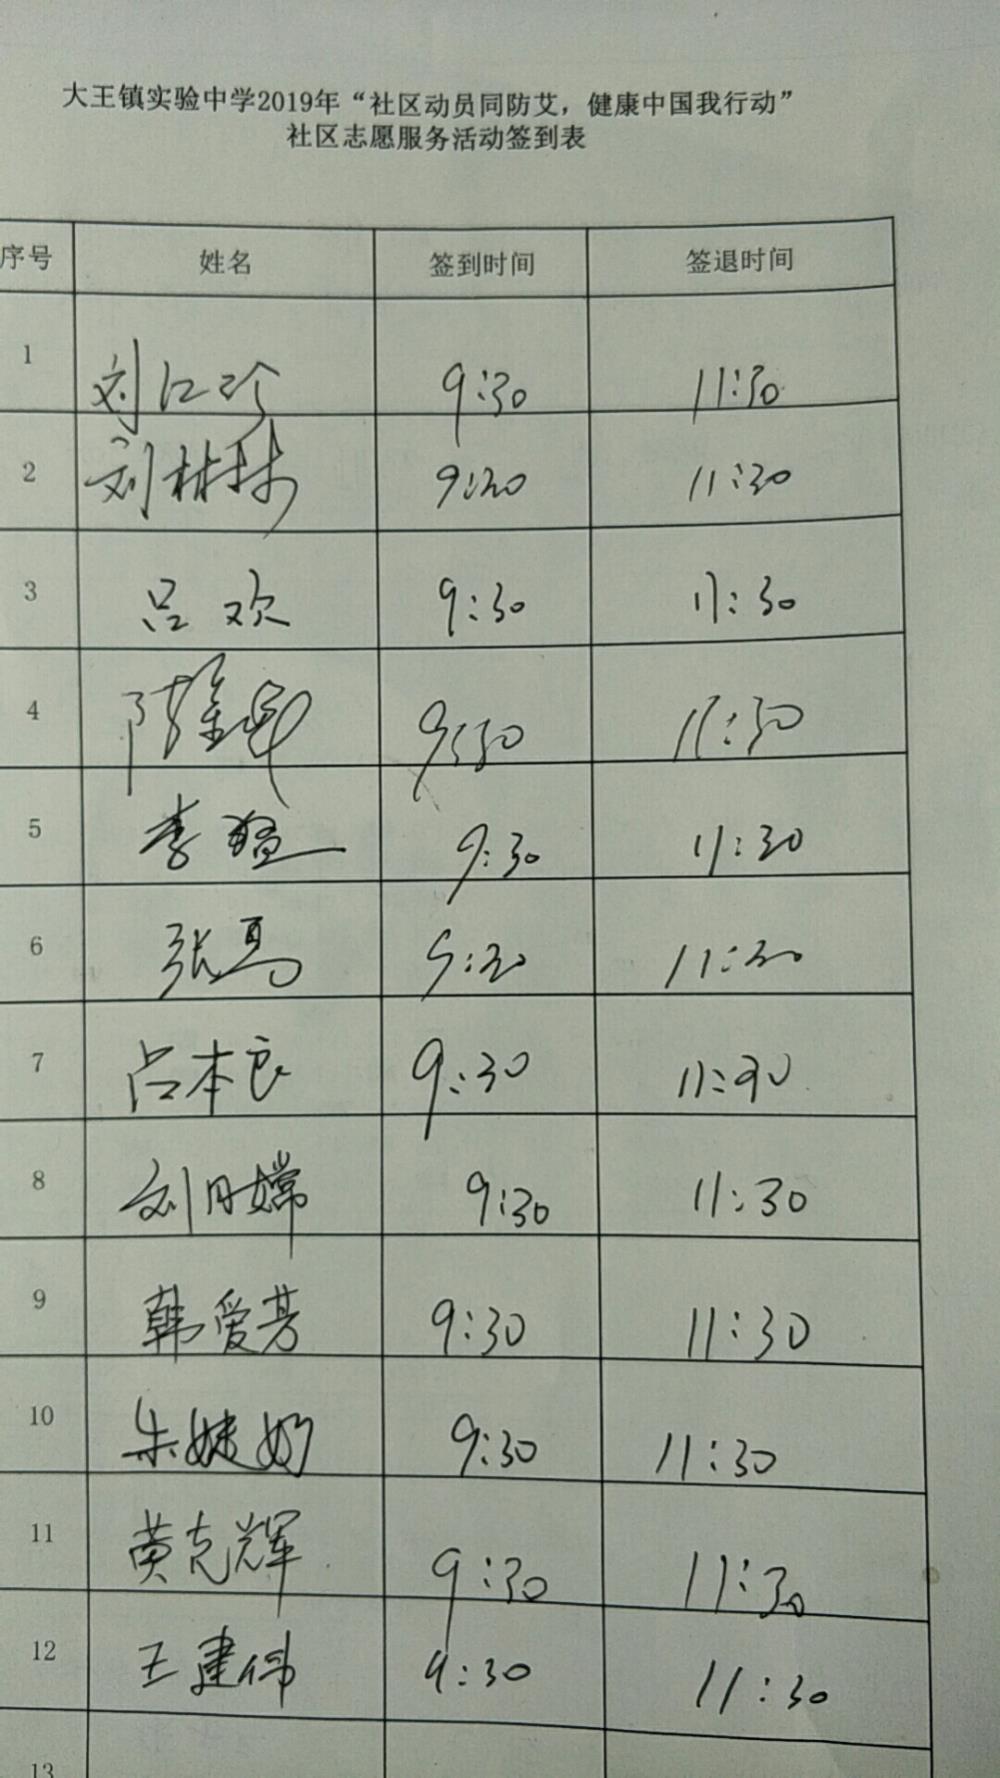 大王镇实验中学2019年“社区动员同防艾，健康中国我行动”
社区志愿服务活动签到表
序号 姓名 签到时间 签退时间
1 刘江珍 9:30 11:30
2 刘林林 9:30 11:30
3 吕欢 9:30 11:30
4 9:30 11:30
5 李 9:30 11:30
6 张马 9:30 11:30
7 吕本良 9:30 11:30
8 刘月嫦 9:30 11:30
9 韩爱芳 9:30 11:30
10 朱 9:30 11:30
11 黄克辉 9:30 11:30
12 王建伟 9:30 11:30
13